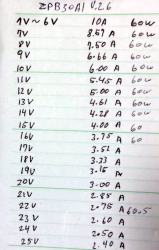 ZPB30A1 V.26
1V~6V 10A 60W
7V 8.57 A 60W
8V 7.50 A 60W
9V 6.66 A 60W
10V 6.00 A 60W
11V 5.45 A 60W
12V 5.00 A 60W
13V 4.61 A 60W
14V 4.28 A 60W
15V 4.00 A 60
16V 3.75 A 60
17V 3.52 A
18V 3.33 A
19V 3.15 A
20V 3.00 A
21V 2.85 A
22V 2.75 A 60.5
23V 2.60 A
24V 2.50 A
25V 2.40 A